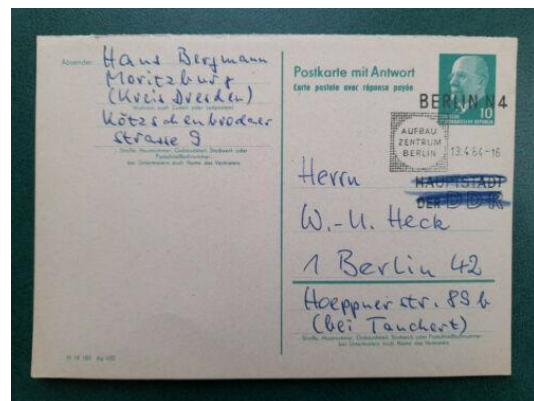 Absender: Hans Bergmann
Moritzburg
(Kreis Dresden)
Kötzschenbrodaer
strasse 9
Straße, Hausnummer, Gebäudeteil, Stockwerk oder Postschließfachnummer;
bei Untermietern auch Name des Vermieters
Postkarte mit Antwort
Carte postale avec réponse payée
10
BERLIN N4
AUFBAU
ZENTRUM
BERLIN
13.4.64-16
HAUPTSTADT
DER DDR
Herrn
W.-U. Heck
1 Berlin 42
Hoeppnerstr. 89 b
(bei Tauchert)
Straße, Hausnummer, Gebäudeteil, Stockwerk oder Postschließfachnummer;
bei Untermietern auch Name des Vermieters